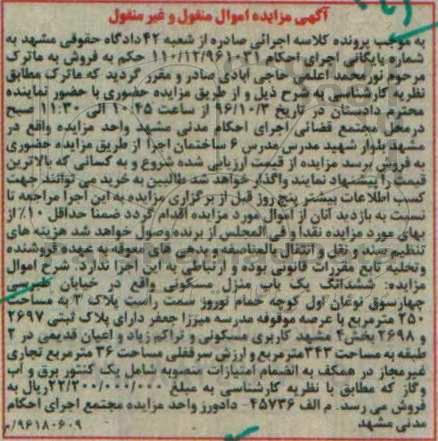 آگهی مزایده اموال منقول و غیر منقول
به موجب پرونده کلاسه اجرائی صادره از شعبه ۴۲ دادگاه حقوقی مشهد به
شماره بایگانی اجرای احکام ۱۱۰/۱۲/۹۶۱۰۳۱ حکم به فروش به ماترک
مرحوم نورمحمد اعلمی حاجی آبادی صادر و مقرر گردید که ماترک مطابق
نظریه کارشناسی به شرح ذیل و از طریق مزایده حضوری با حضور نماینده
محترم دادستان در تاریخ ۹۶/۱۰/۳ از ساعت ۱۰:۴۵ الی ۱۱:۳۰ صبح
درمحل مجتمع قضائی اجرای احکام مدنی مشهد واحد مزایده واقع در
مشهد بلوار شهید مدرس مدرس ۶ ساختمان اجرا از طریق مزایده حضوری
به فروش برسد مزایده از قیمت ارزیابی شده شروع و به کسانی که بالاترین
قیمت را پیشنهاد نمایند واگذار خواهد شد طالبین به خرید می توانند جهت
کسب اطلاعات بیشتر پنج روز قبل از برگزاری مزایده به این اجرا مراجعه تا
نسبت به بازدید آنان از اموال مورد مزایده اقدام گردد ضمنا حداقل ۱۰٪ از
بهای مورد مزایده نقدا و فی المجلس از برنده وصول خواهد شد هزینه های
تنظیم سند و نقل و انتقال بالمناصفه و بدهی های معوقه به عهده فروشنده
وتخلیه تابع مقررات قانونی بوده و ارتباطی به این اجرا ندارد. شرح اموال
مزایده: ششدانگ یک باب منزل مسکونی واقع در خیابان طبرسی
چهارسوق نوغان اول کوچه حمام نوروز سمت راست پلاک ۳ به مساحت
۲۵۰ مترمربع با عرصه موقوفه مدرسه میرزا جعفر دارای پلاک ثبتی ۲۶۹۷
و ۲۶۹۸ بخش ۴ مشهد کاربری مسکونی و تراکم زیاد و اعیان قدیمی در ۲
طبقه به مساحت ۳۴۳ مترمربع و ارزش سرقفلی مساحت ۳۶ مترمربع تجاری
غیرمجاز در همکف به انضمام امتیازات منصوبه شامل یک کنتور برق و آب
وگاز که مطابق با نظریه کارشناسی به مبلغ ۲۲/۲۰۰/۰۰۰/۰۰۰ ریال به
فروش می رسد. م الف ۴۵۷۳۶- دادورز واحد مزایده مجتمع اجرای احکام
مدنی مشهد
۹۶۱۸۰۶۰۹/م